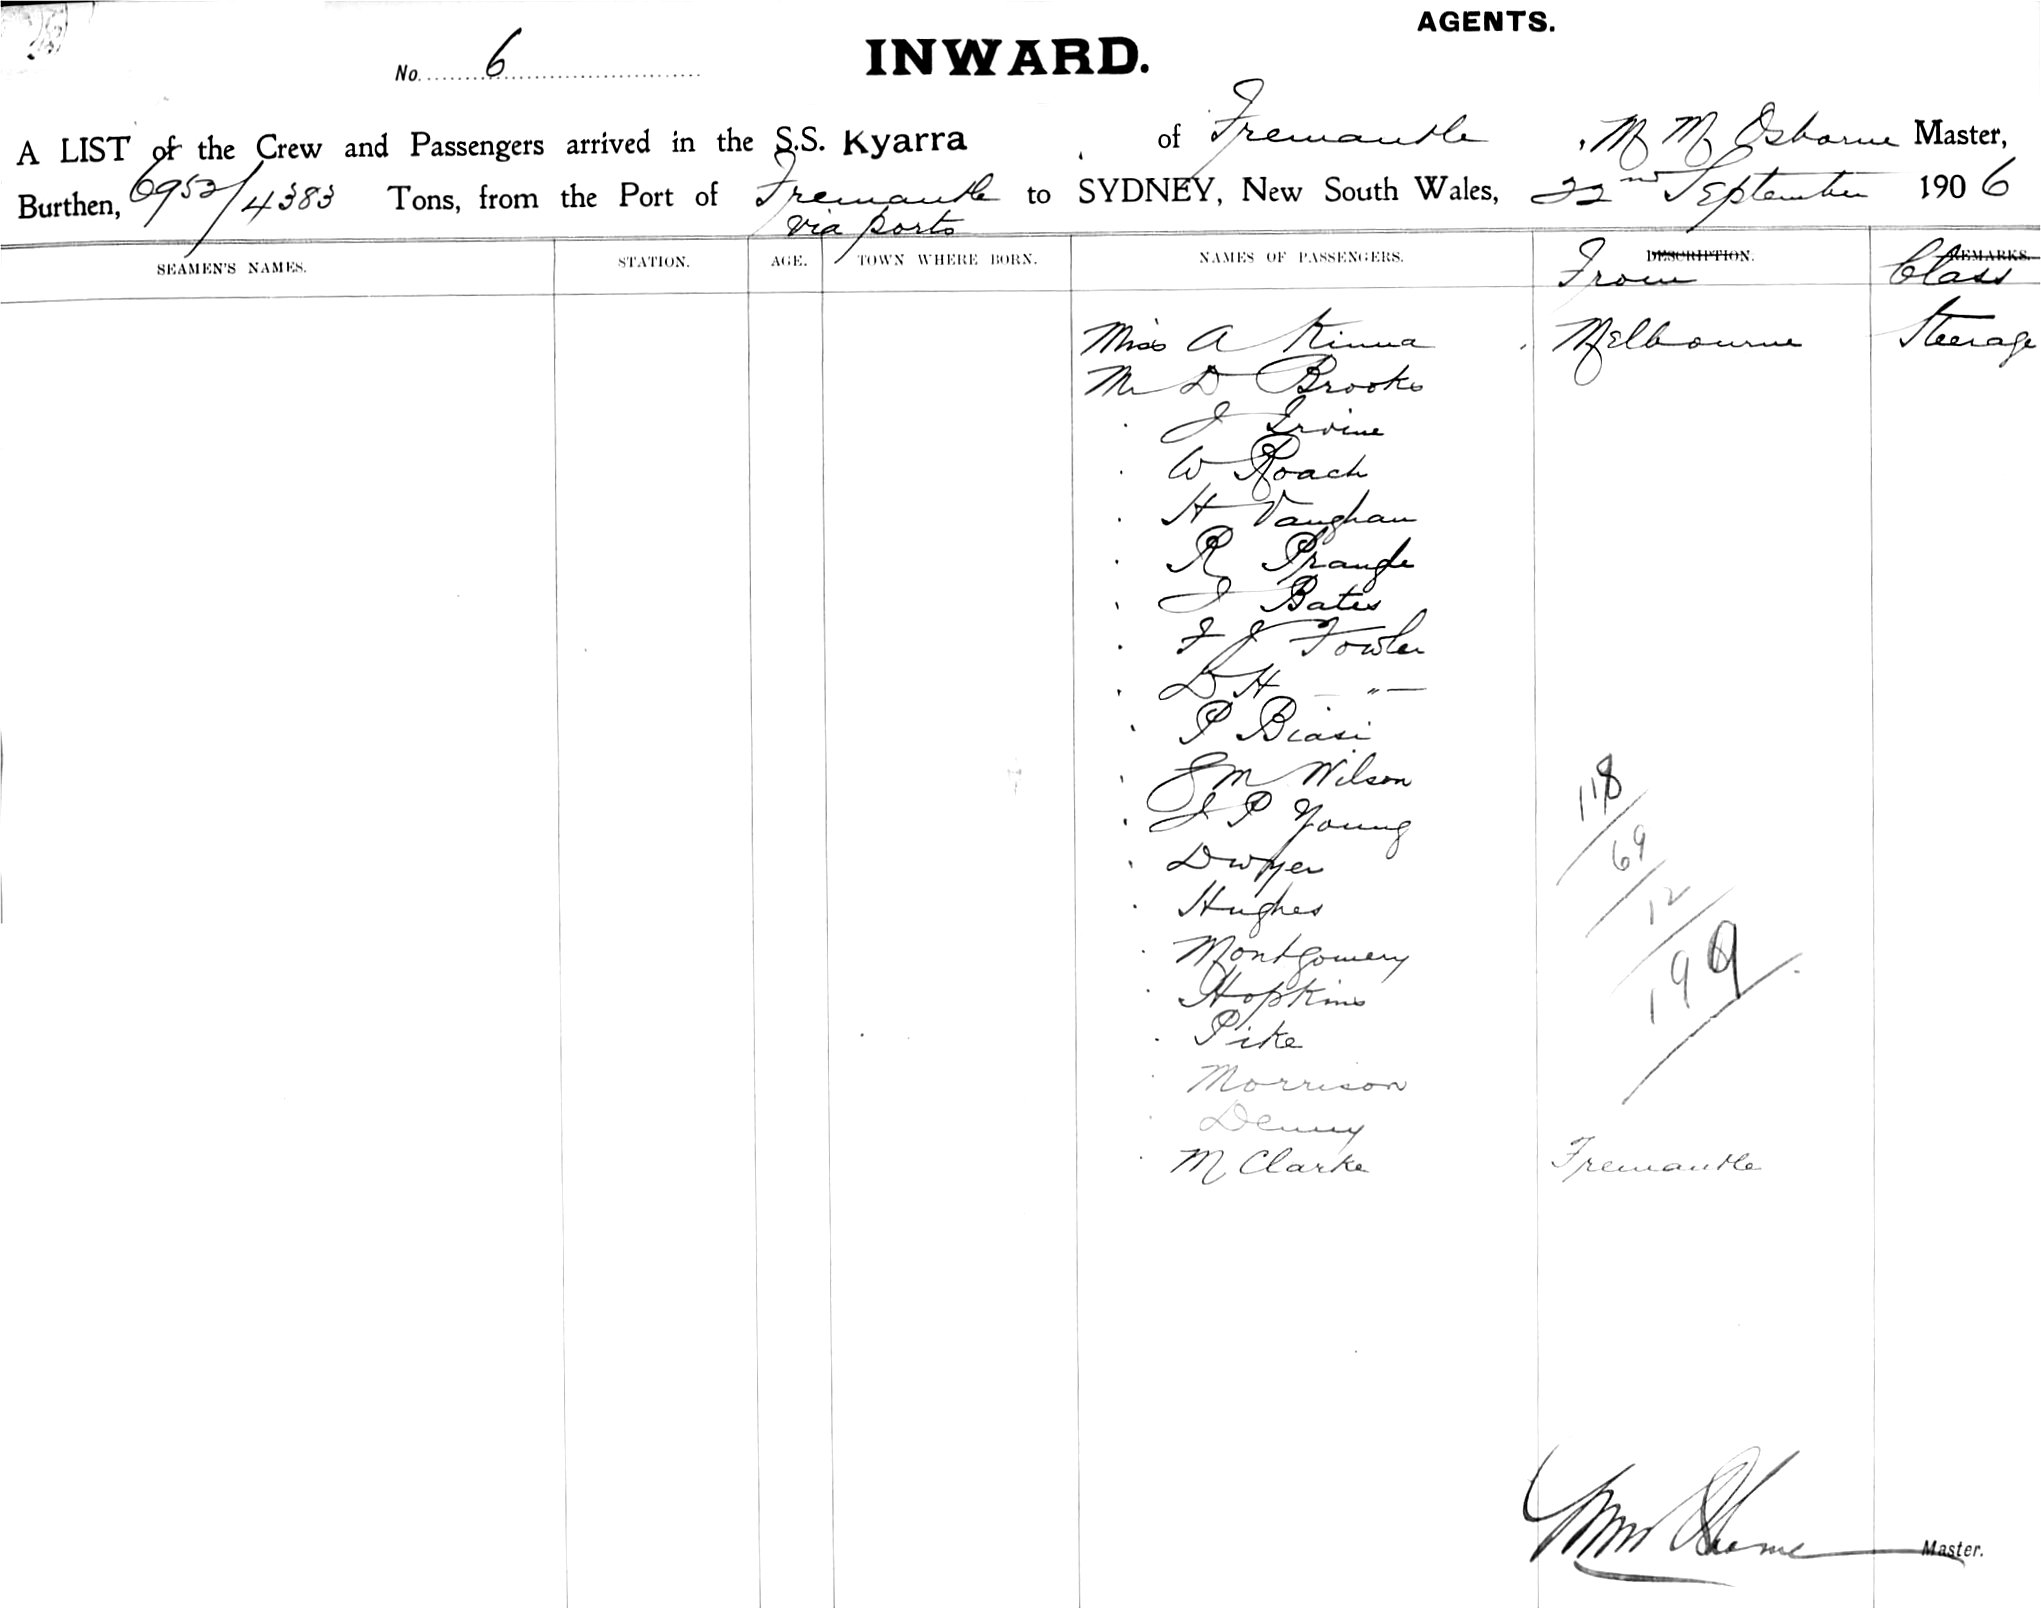 AGENTS.
No. 6 INWARD.
A LIST of the Crew and Passengers arrived in the S.S. Kyarra of Fremantle, M M Osborne Master,
Burthen, 6952/4383 Tons, from the Port of Fremantle to SYDNEY, New South Wales, 22nd September 1906
via ports
SEAMEN'S NAMES. STATION. AGE. TOWN WHERE BORN. NAMES OF PASSENGERS. DESCRIPTION. REMARKS.
From Class
Miss A Kinna Melbourne Steerage
Mr D Brooks
. J Irvine
. W Roach
. H Vaughan
. R Prangle
. J Bates
. F J Fowler
. D H — " —
. P Biasi
. M Wilson
. J P Young
. Dwyer
. Hughes
. Montgomery
. Hopkins
. Pike
. Morrison
. Denny
. M Clarke Fremantle
118
69
12
199
Master.